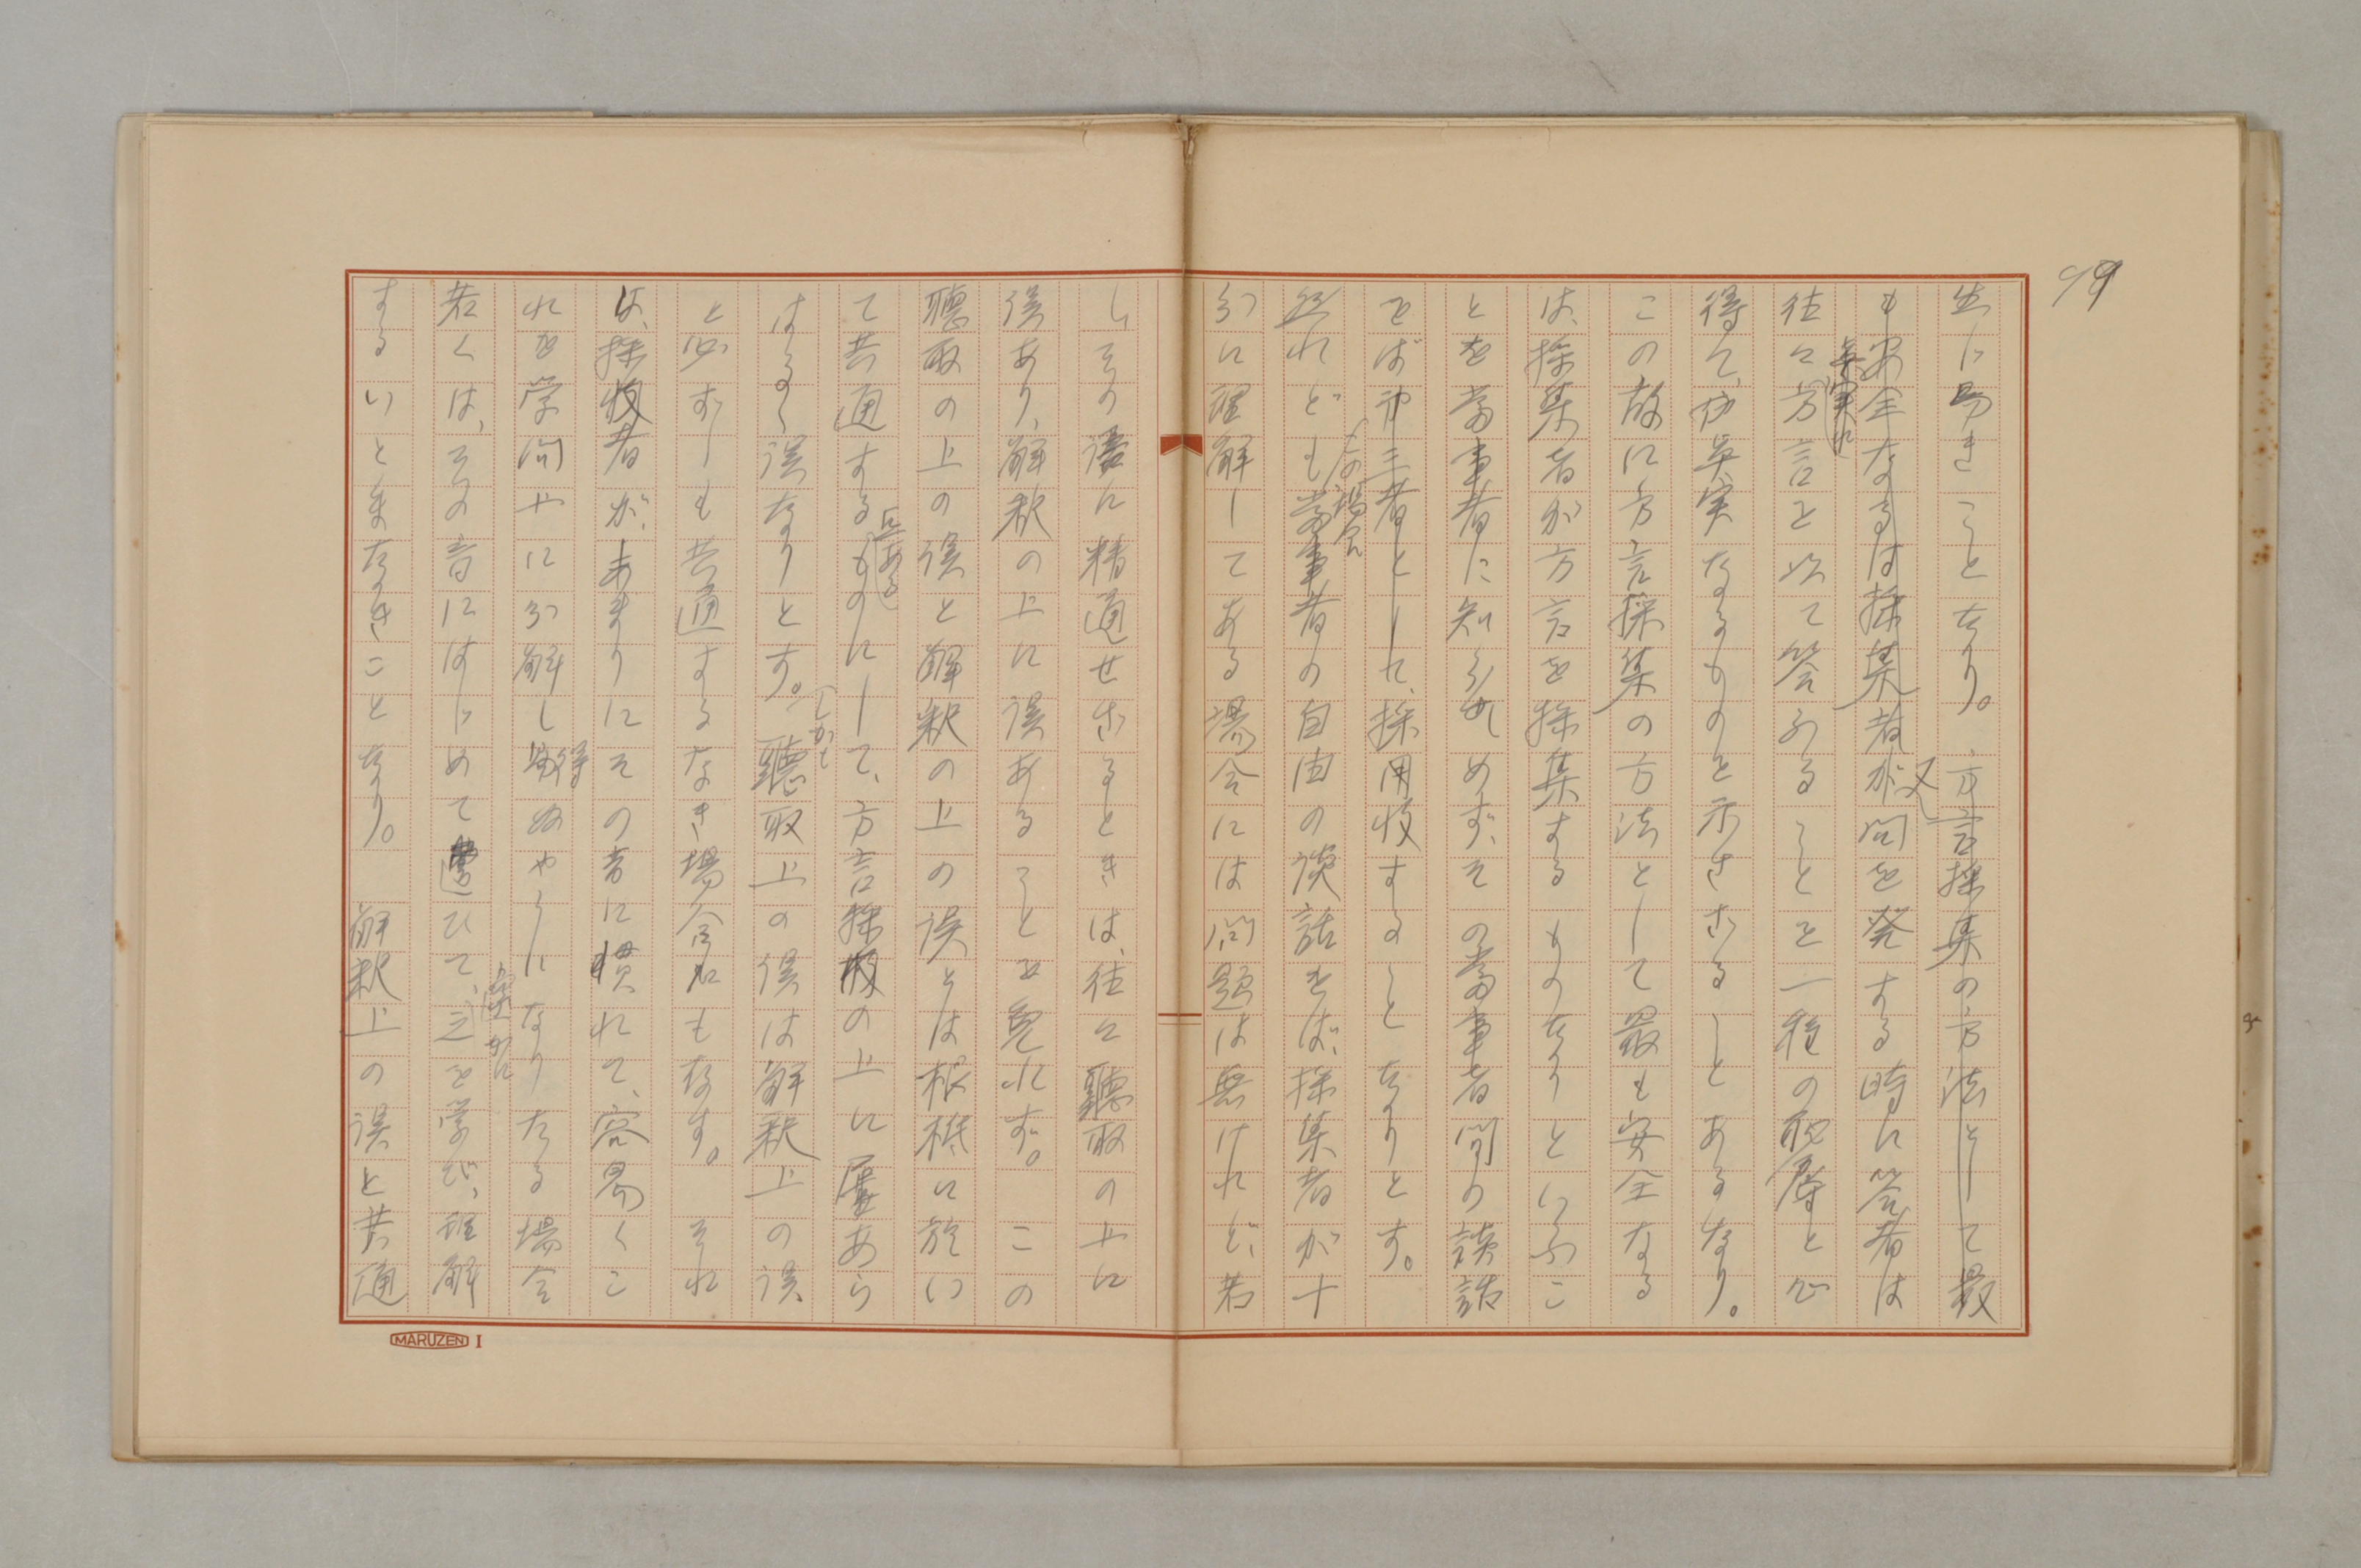 99
生じ易きことなり。又、方言採集の方法として最
も安全なるは採集者が問を発する時に答者は
往々方言を以て答ふることを一種の恥辱と心
得て、故実なるものと示さざることあるなり。
この故に方言採集の方法として最も安全なる
は、採集者が方言を採集するものなりといふこ
とを当事者に知らしめず、その当事者間の談話
をば第三者として、採用收することなりとす。
然れども当事者の自由の談話をば、採集者が十
分に理解してある場合には問題は無けれど、若
し、その語に精通せざるときは、往々聽取の上に
誤あり、解釈の上に誤あることを免れず。この
聽取の上の誤と解釈の上の誤とは根柢に於い
て共通するものにして、方言採收の上に屡あら
はるゝ誤なりとす。しかも聽取上の誤は解釈上の誤
と必ずしも共通するなき場合もなす。それ
は、採收者が、あまりにその音に慣れて、容易くこ
れを学問上に分解し得ぬやうになりたる場合
若くは、その音にはじめて遭ひて、之を学び、理解
するいとまなきことなり。解釈上の誤と共通
MARUZEN I